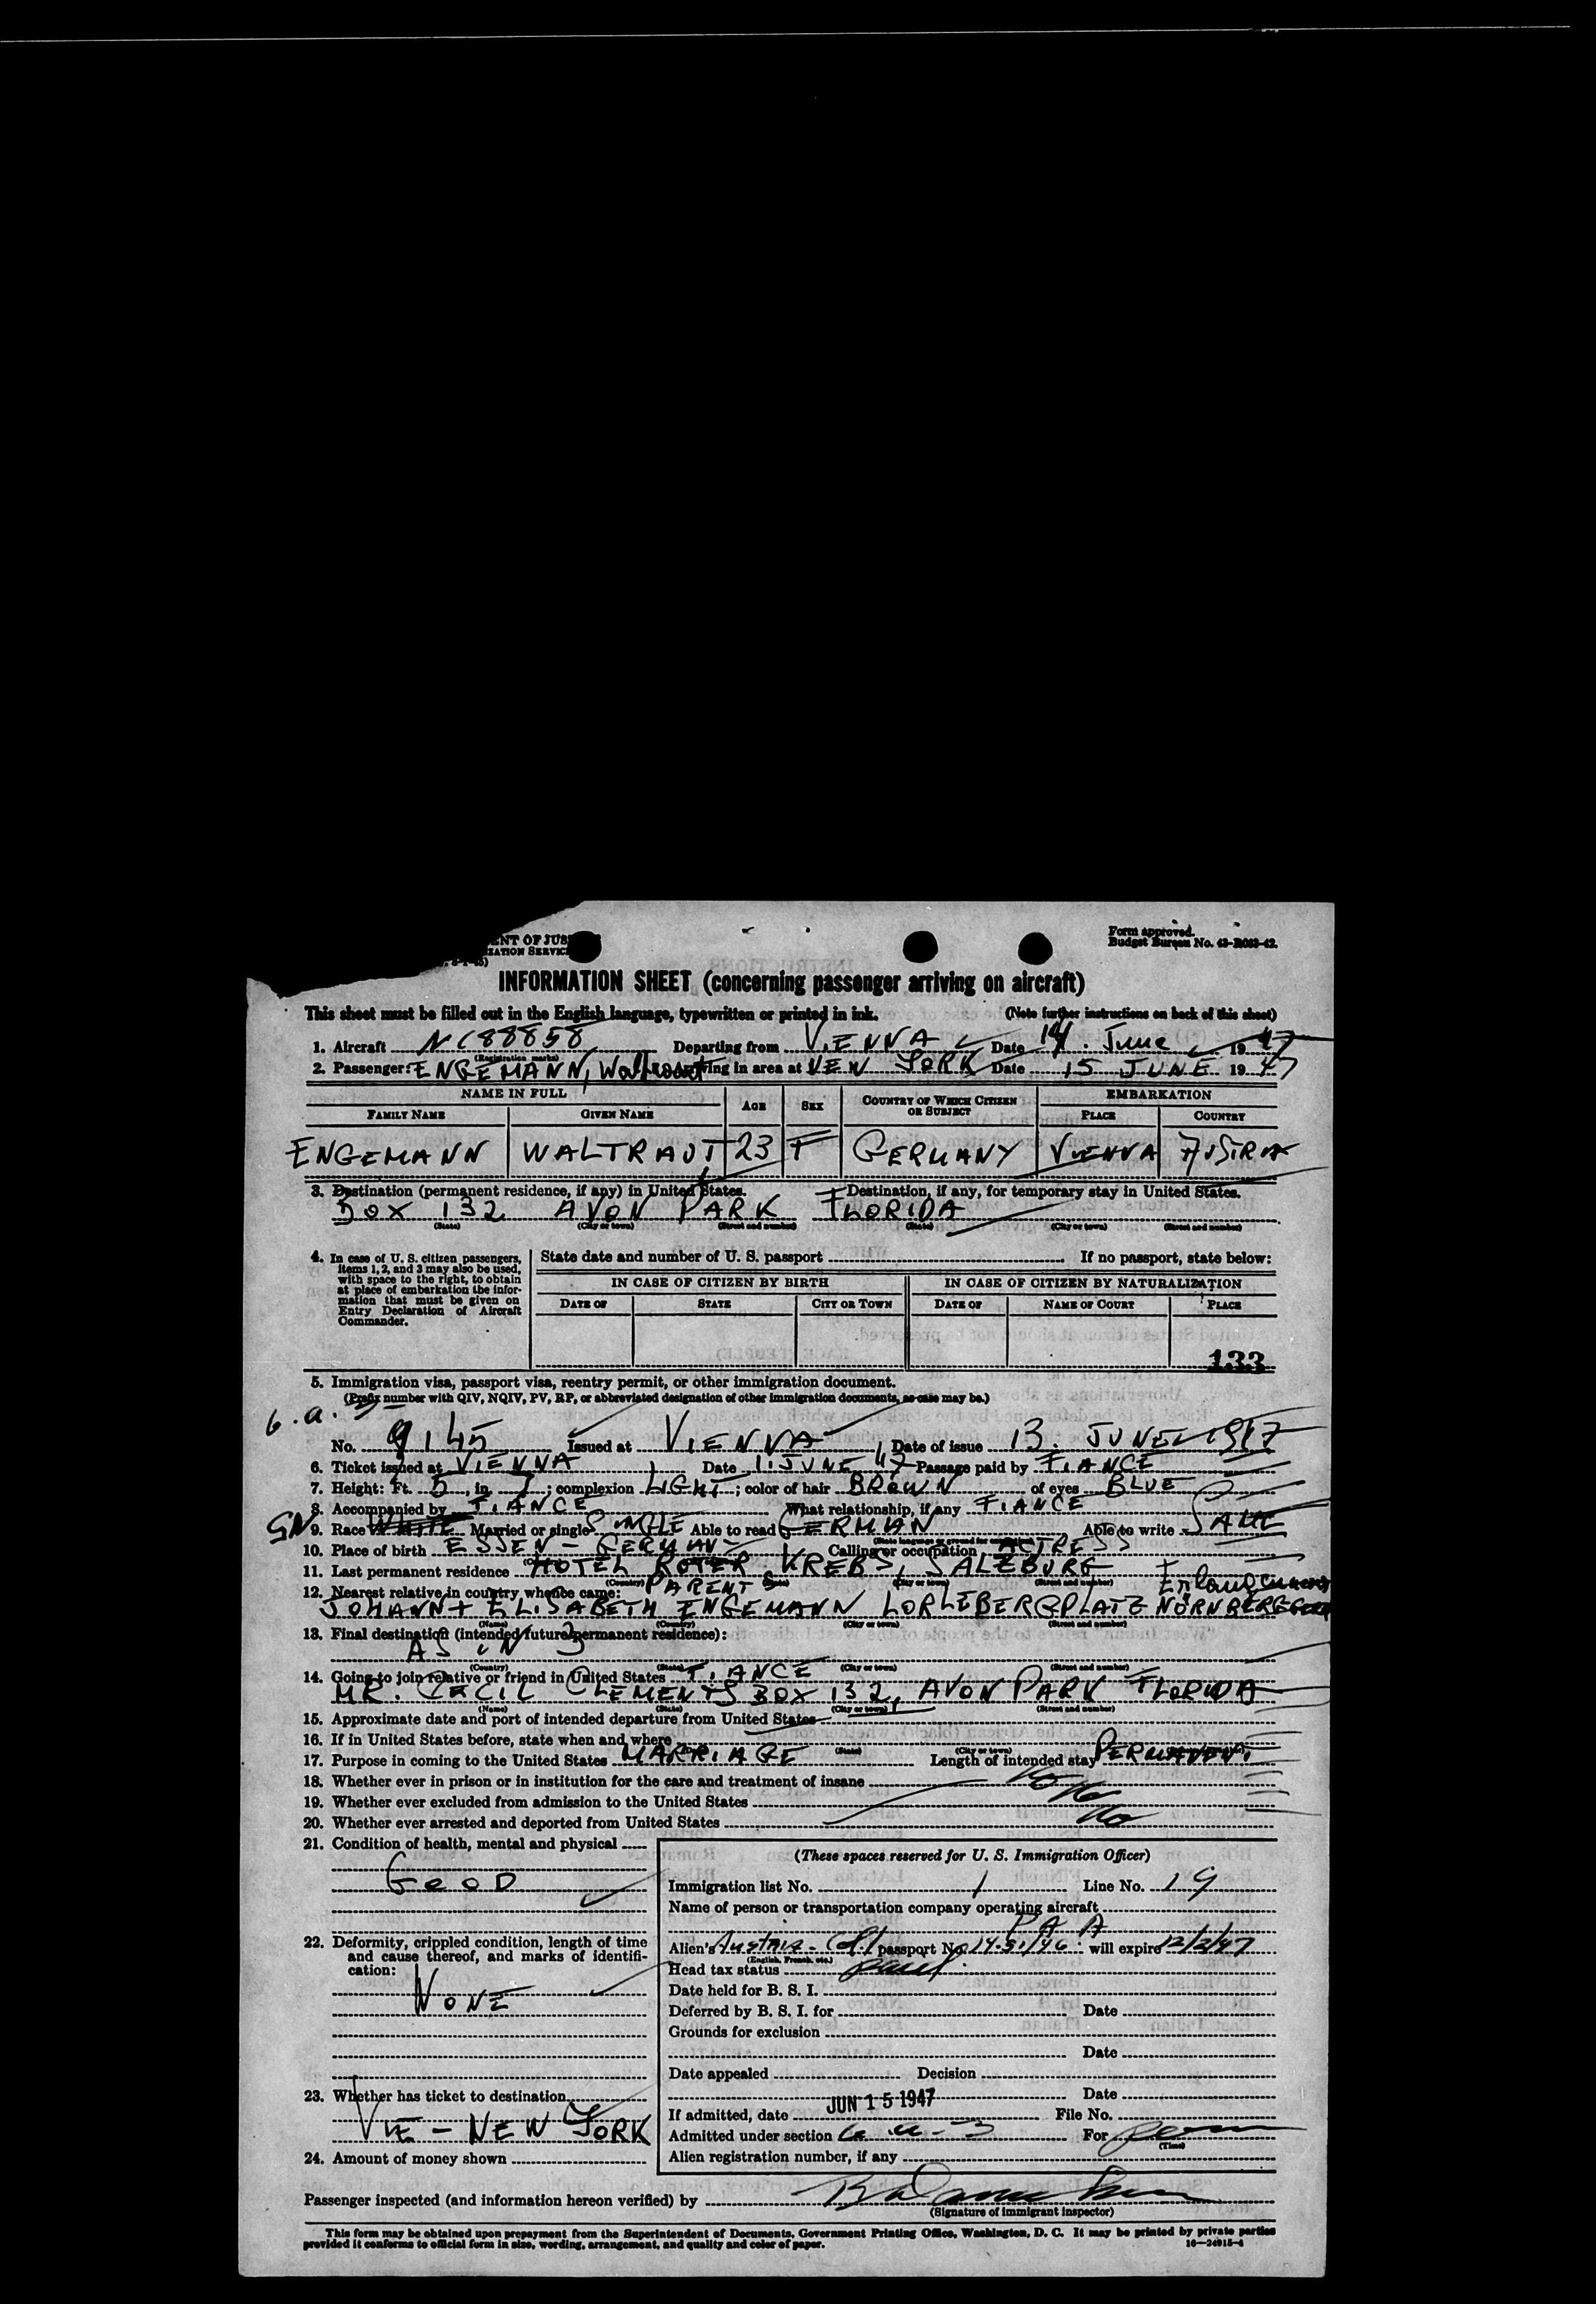 ENT OF JUS
ZATION SERVICE
Form approved.
Budget Bureau No. 43-R063-42.
INFORMATION SHEET (concerning passenger arriving on aircraft)
This sheet must be filled out in the English language, typewritten or printed in ink. (Note further instructions on back of this sheet)
1. Aircraft NC88858 Departing from VIENNA Date 14. June 1947
(Registration marks)
2. Passenger: ENGEMANN, Waltraut Arriving in area at NEW YORK Date 15 JUNE 1947
NAME IN FULL AGE SEX COUNTRY OF WHICH CITIZEN OR SUBJECT EMBARKATION
FAMILY NAME GIVEN NAME PLACE COUNTRY
ENGEMANN WALTRAUT 23 F GERMANY VIENNA AUSTRIA
3. Destination (permanent residence, if any) in United States. Destination, if any, for temporary stay in United States.
BOX 132 AVON PARK FLORIDA
(State) (City or town) (Street and number) (State) (City or town) (Street and number)
4. In case of U. S. citizen passengers, items 1, 2, and 3 may also be used, with space to the right, to obtain at place of embarkation the information that must be given on Entry Declaration of Aircraft Commander.
State date and number of U. S. passport If no passport, state below:
IN CASE OF CITIZEN BY BIRTH IN CASE OF CITIZEN BY NATURALIZATION
DATE OF STATE CITY OR TOWN DATE OF NAME OF COURT PLACE
133
5. Immigration visa, passport visa, reentry permit, or other immigration document.
(Prefix number with QIV, NQIV, PV, RP, or abbreviated designation of other immigration documents, as case may be.)
6.a.3
No. 9145 Issued at VIENNA Date of issue 13. JUNE 1947
6. Ticket issued at VIENNA Date 1. JUNE 47 Passage paid by FIANCE
7. Height: Ft. 5, in. 7; complexion LIGHT; color of hair BROWN of eyes BLUE
8. Accompanied by FIANCE What relationship, if any FIANCE
GN 9. Race WHITE Married or single SINGLE Able to read GERMAN Able to write SAME
(State language or ground for exemption)
10. Place of birth ESSEN - GERMANY Calling or occupation ACTRESS
11. Last permanent residence HOTEL ROTER KREBS, SALZBURG
(Country) (State) (City or town) (Street and number)
12. Nearest relative in country whence came: PARENTS Erlangen
JOHANN + ELISABETH ENGEMANN LORLEBERGPLATZ NÜRNBERG
(Name) (Country) (City or town) (Street and number)
13. Final destination (intended future permanent residence):
AS IN 3
(Country) (State) (City or town) (Street and number)
14. Going to join relative or friend in United States FIANCE
MR. CECIL CLEMENTS BOX 132, AVON PARK FLORIDA
(Name) (State) (City or town) (Street and number)
15. Approximate date and port of intended departure from United States
16. If in United States before, state when and where
(State) (City or town)
17. Purpose in coming to the United States MARRIAGE Length of intended stay PERMANENT
18. Whether ever in prison or in institution for the care and treatment of insane No
19. Whether ever excluded from admission to the United States No
20. Whether ever arrested and deported from United States No
21. Condition of health, mental and physical
GOOD
22. Deformity, crippled condition, length of time and cause thereof, and marks of identification:
NONE
23. Whether has ticket to destination
VIE - NEW YORK
24. Amount of money shown
(These spaces reserved for U. S. Immigration Officer)
Immigration list No. 1 Line No. 19
Name of person or transportation company operating aircraft
PAA
Alien's passport No. 14.51/46 will expire 12/2/47
(English, French, etc.)
Head tax status paid
Date held for B. S. I.
Deferred by B. S. I. for Date
Grounds for exclusion
Date
Date appealed Decision
Date
If admitted, date JUN 15 1947 File No.
Admitted under section 6.a-3 For perm
(Time)
Alien registration number, if any
Passenger inspected (and information hereon verified) by
(Signature of immigrant inspector)
This form may be obtained upon prepayment from the Superintendent of Documents, Government Printing Office, Washington, D. C. It may be printed by private parties
provided it conforms to official form in size, wording, arrangement, and quality and color of paper. 16—24915-4